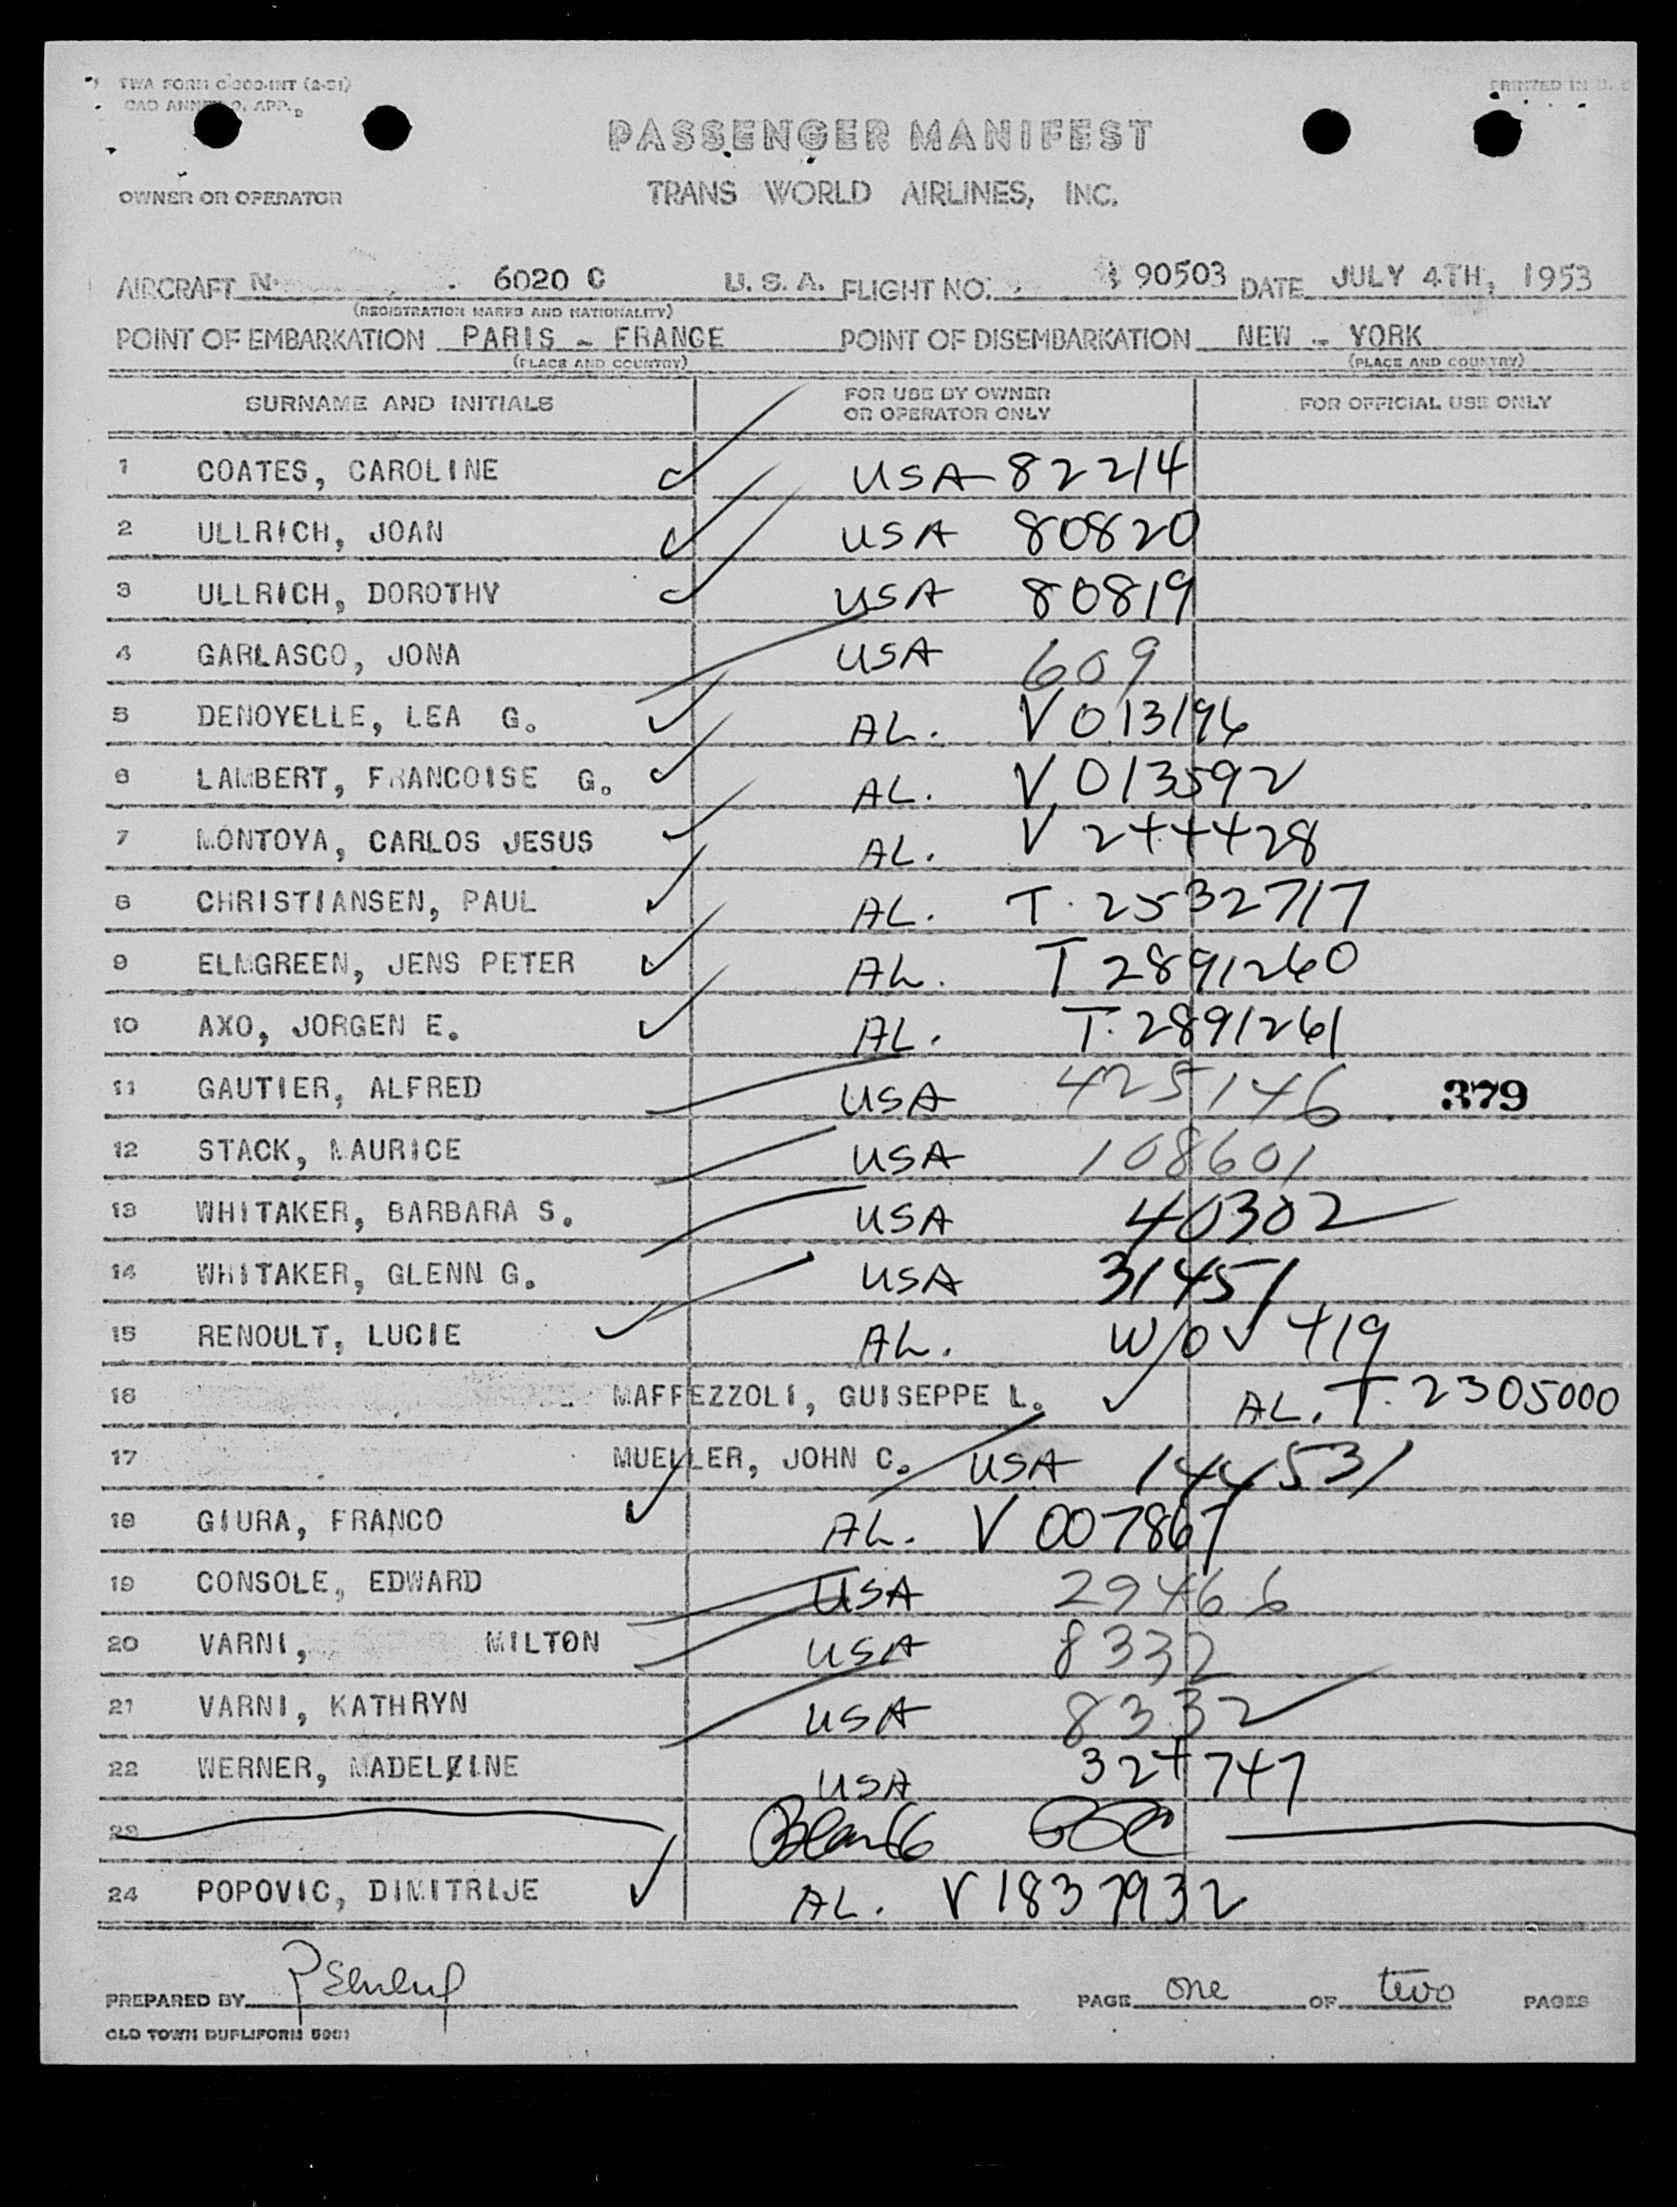 TWA FORM C-300-INT (2-51)
CAO ANNEX 9, APP.
PRINTED IN U. S
PASSENGER MANIFEST
OWNER OR OPERATOR
TRANS WORLD AIRLINES, INC.
AIRCRAFT N- 6020 C U. S. A. FLIGHT NO. 90503 DATE JULY 4TH, 1953
(REGISTRATION MARKS AND NATIONALITY)
POINT OF EMBARKATION PARIS - FRANCE POINT OF DISEMBARKATION NEW - YORK
(PLACE AND COUNTRY) (PLACE AND COUNTRY)
SURNAME AND INITIALS FOR USE BY OWNER OR OPERATOR ONLY FOR OFFICIAL USE ONLY
1 COATES, CAROLINE USA 82214
2 ULLRICH, JOAN USA 80820
3 ULLRICH, DOROTHY USA 80819
4 GARLASCO, JONA USA 609
5 DENOYELLE, LEA G. AL. V 013196
6 LAMBERT, FRANCOISE G. AL. V 013592
7 MONTOYA, CARLOS JESUS AL. V 244428
8 CHRISTIANSEN, PAUL AL. T. 2532717
9 ELMGREEN, JENS PETER AL. T 2891260
10 AXO, JORGEN E. AL. T. 2891261
11 GAUTIER, ALFRED USA 425146 379
12 STACK, MAURICE USA 108601
13 WHITAKER, BARBARA S. USA 40302
14 WHITAKER, GLENN G. USA 31451
15 RENOULT, LUCIE AL. W/O V 419
16 MAFFEZZOLI, GUISEPPE L. AL. T. 2305000
17 MUELLER, JOHN C. USA 144531
18 GIURA, FRANCO AL. V 007867
19 CONSOLE, EDWARD USA 29466
20 VARNI, MILTON USA 8332
21 VARNI, KATHRYN USA 8332
22 WERNER, MADELEINE USA 324747
23 Blank
24 POPOVIC, DIMITRIJE AL. V 1837932
PREPARED BY PAGE one OF two PAGES
OLD TOWN DUPLIFORM 5001